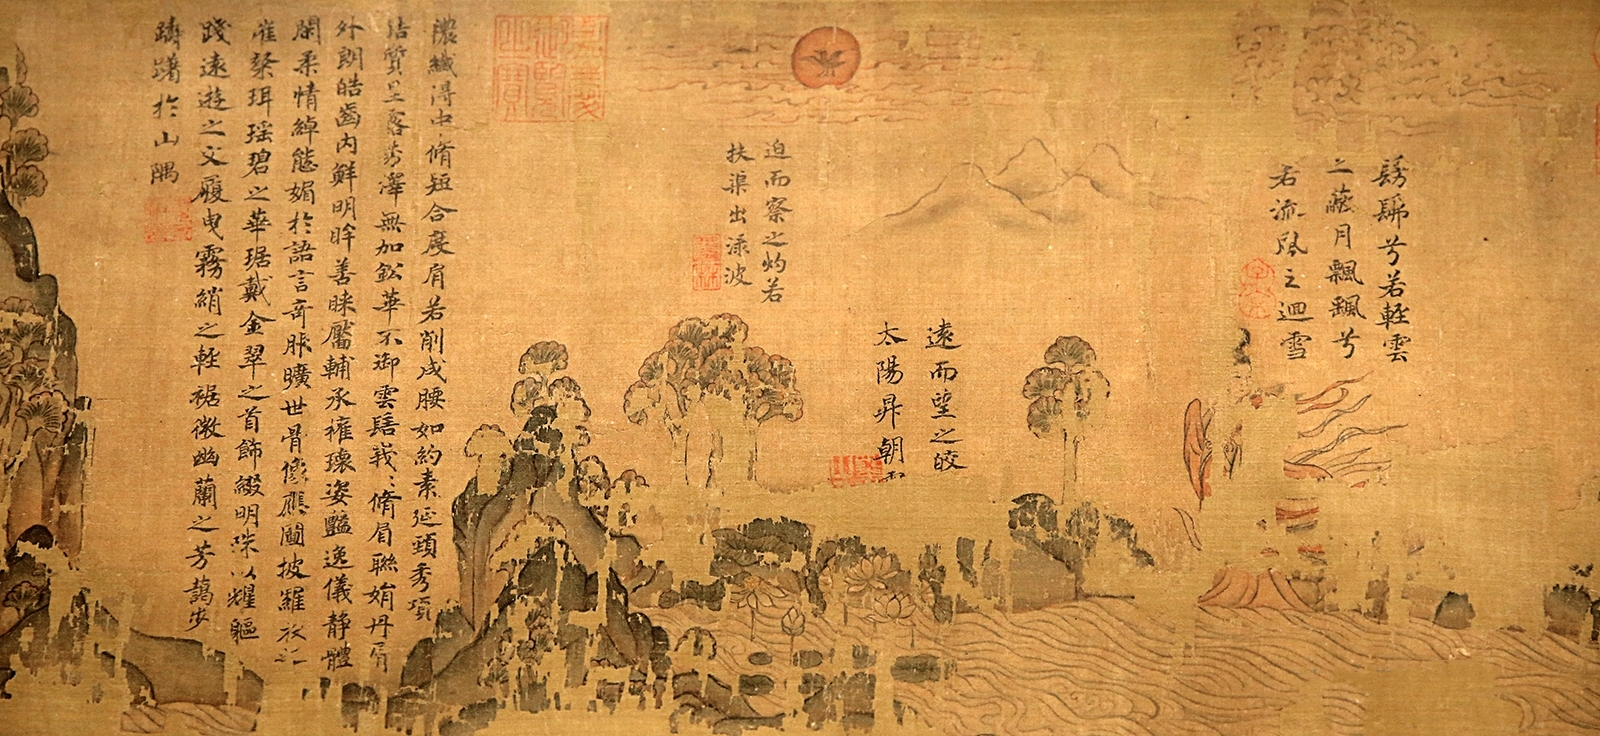 髣髴兮若軽雲
之蔽月飄飄兮
若流風之迴雪
遠而望之皎
太陽昇朝
迫而察之灼若
扶渠出渌波
嘉慶
御覽
之寶
濃纖得中脩短合度肩若削成腰如約素延頸秀項
皓質呈露芳澤無加鈆華不御雲髻峩〻脩眉聯娟丹脣
外朗皓齒内鮮明眸善睞靨輔承權瓌姿豔逸儀靜體
閑柔情綽態媚於語言奇服曠世骨像應圖披羅衣之
璀粲珥瑶碧之華琚戴金翠之首飾綴明珠以耀軀
踐遠遊之文履曳霧綃之軽裾微幽蘭之芳藹步
躊躇於山隅